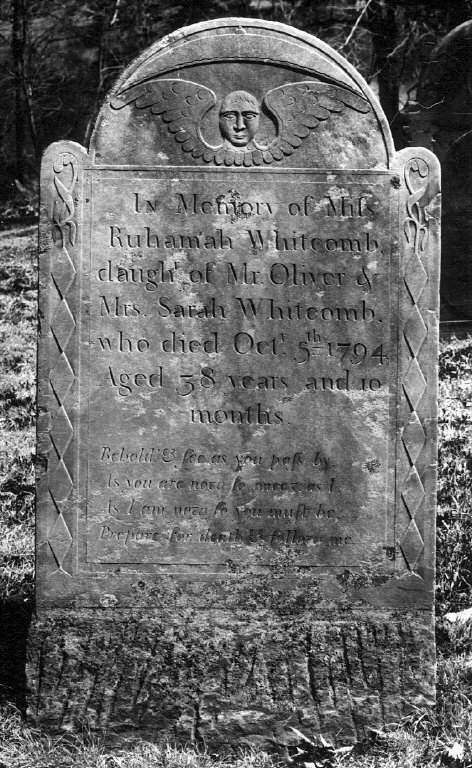 In Memory of Miſs
Ruhamah Whitcomb,
daughr. of Mr. Oliver &
Mrs. Sarah Whitcomb,
who died Octr. 5th 1794
Aged 38 years and 10
months
Behold & ſee as you paſs by,
As you are now ſo once was I,
As I am now ſo you muſt be,
Prepare for death & follow me.